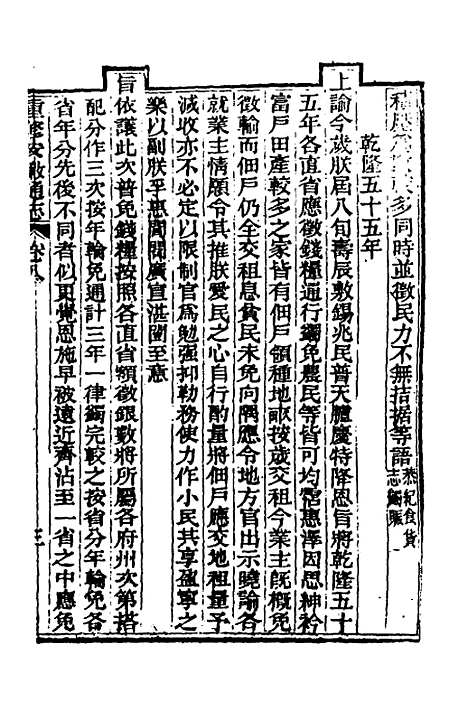 多同時並徵民力不無拮据等語恭紀食貨
志蠲賑
乾隆五十五年
上諭今歲朕屆八旬壽辰敷錫兆民普天臚慶特降恩旨將乾隆五十
五年各直省應徵錢糧通行蠲免農民等皆可均霑惠澤因思紳衿
富戶田產較多之家皆有佃戶領種地畝按歲交租今業主旣概免
徵輸而佃戶仍全交租息貧民未免向隅應令地方官出示曉諭各
就業主情願令其推朕愛民之心自行酌量將佃戶應交地租量予
減收亦不必定以限制官爲勉强抑勒務使力作小民共享盈寧之
樂以副朕孚惠閭閻廣宣湛闓至意
旨依議此次普免錢糧按照各直省額徵銀數將所屬各府州次第搭
配分作三次按年輪免通計三年一律蠲完較之按省分年輪免各
省年分先後不同者似更覺恩施早被遠近齊沾至一省之中應免
重修安徽通志 三